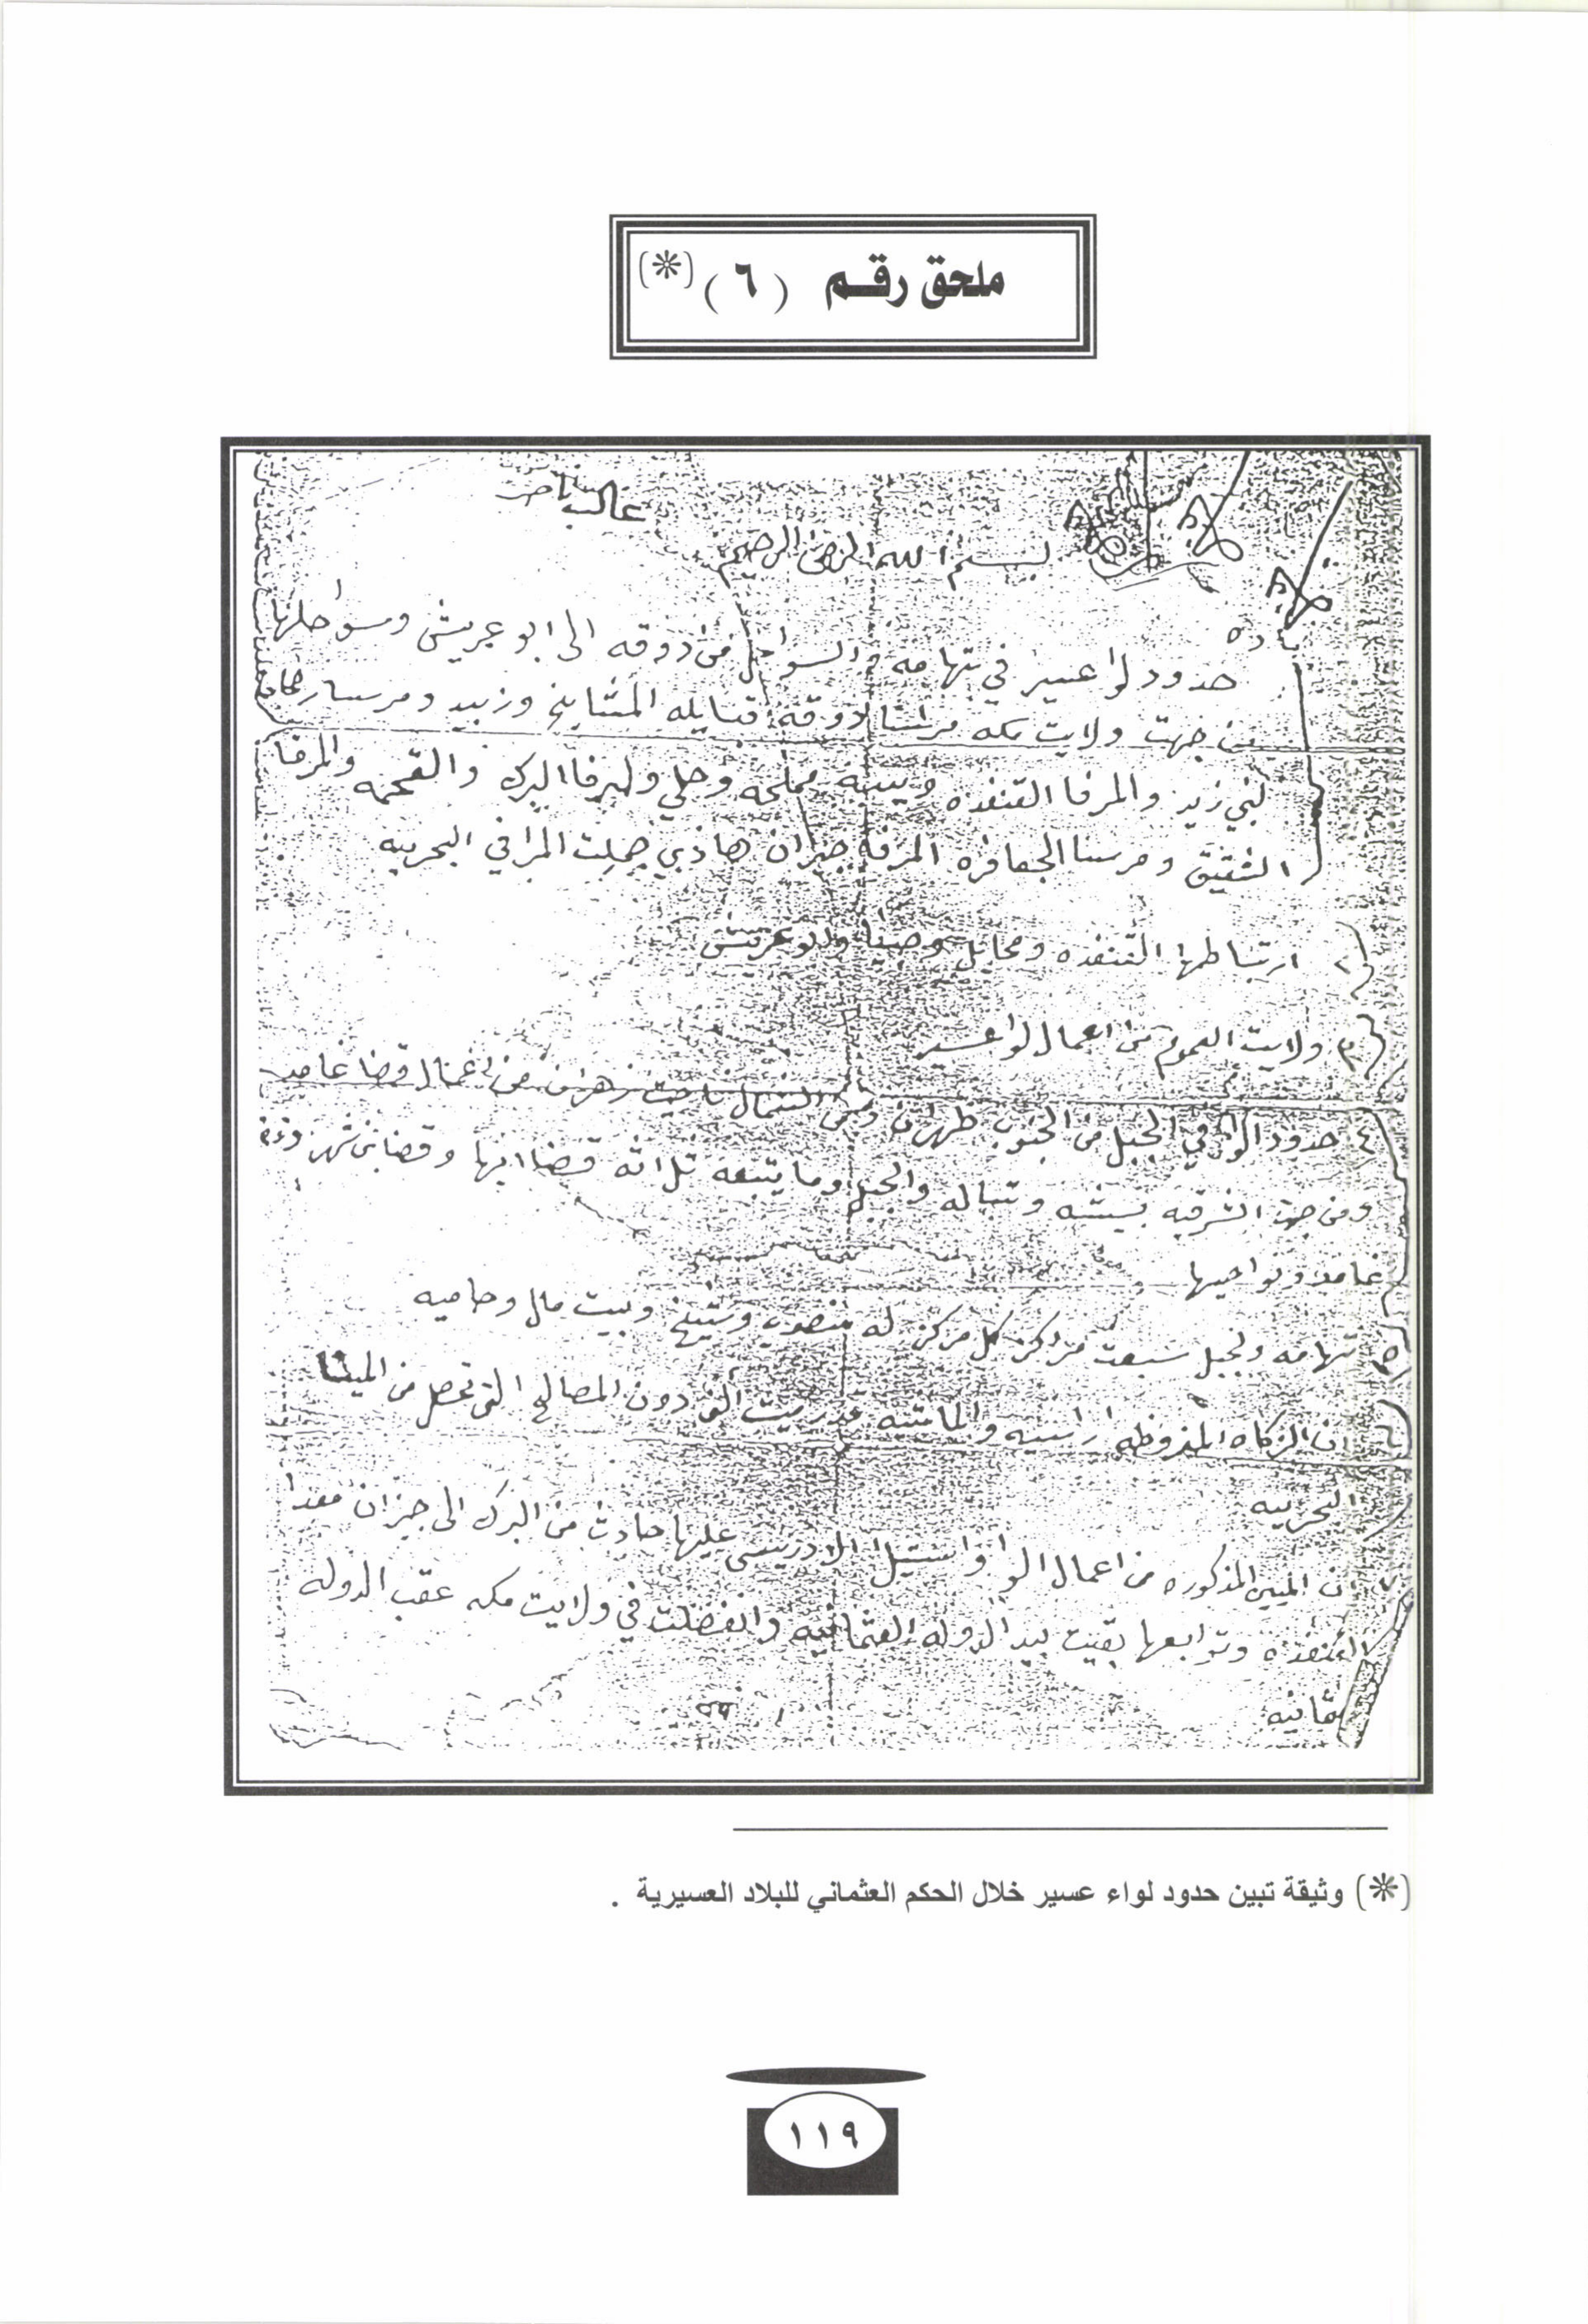 ملحق رقم (٦) (*)
غالب
بسم الله الرحمن الرحيم
حدود لوا عسير في تهامه والسواحل من دوقه الى ابو عريش وسواحلها
من جهت ولايت مكه مرسا دوقه قبايله المشايخ وزبيد ومرسا
لبني زيد والمرفا القنفذه ويبه وحلي والمرفا البرك والقحمه والمرفا
الشقيق ومرسا الجعافره المرفه جيزان هاذي جملت المرافي البحريه
٢ ارتباطها القنفذه ومحايل وصبيا وابو عريش
٣ ولايت العموم من اعمال لوا عسير
٤ حدود الوا في الجبل من الجنوب ظهران ومن الشمال ناحيت زهران من اعمال قضا غامد
ومن جهت الشرقيه بيشه وتباله والجبل وما يتبعه ثلاثه قضا ابها وقضا بني شهر
غامد ونواحيها
٥ تهامه والجبل سبعت مراكز كل مركز له منصوب وشيخ وبيت مال وحاميه
٦ ان الزكاه اراضيه والماشيه دون المصالح التي تحصل من المينا
البحريه
ان المين المذكوره من اعمال الوا واستيلا الادريسي عليها حادث من البرك الى جيزان معدا
القنفذه وتوابعها بقيت بيد الدوله العثمانيه وانفصلت في ولايت مكه عقب الدوله
(*) وثيقة تبين حدود لواء عسير خلال الحكم العثماني للبلاد العسيرية .
١١٩